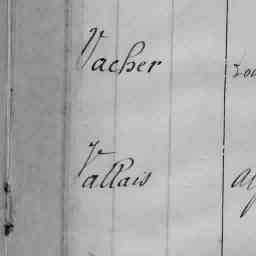 Vacher
Vallais